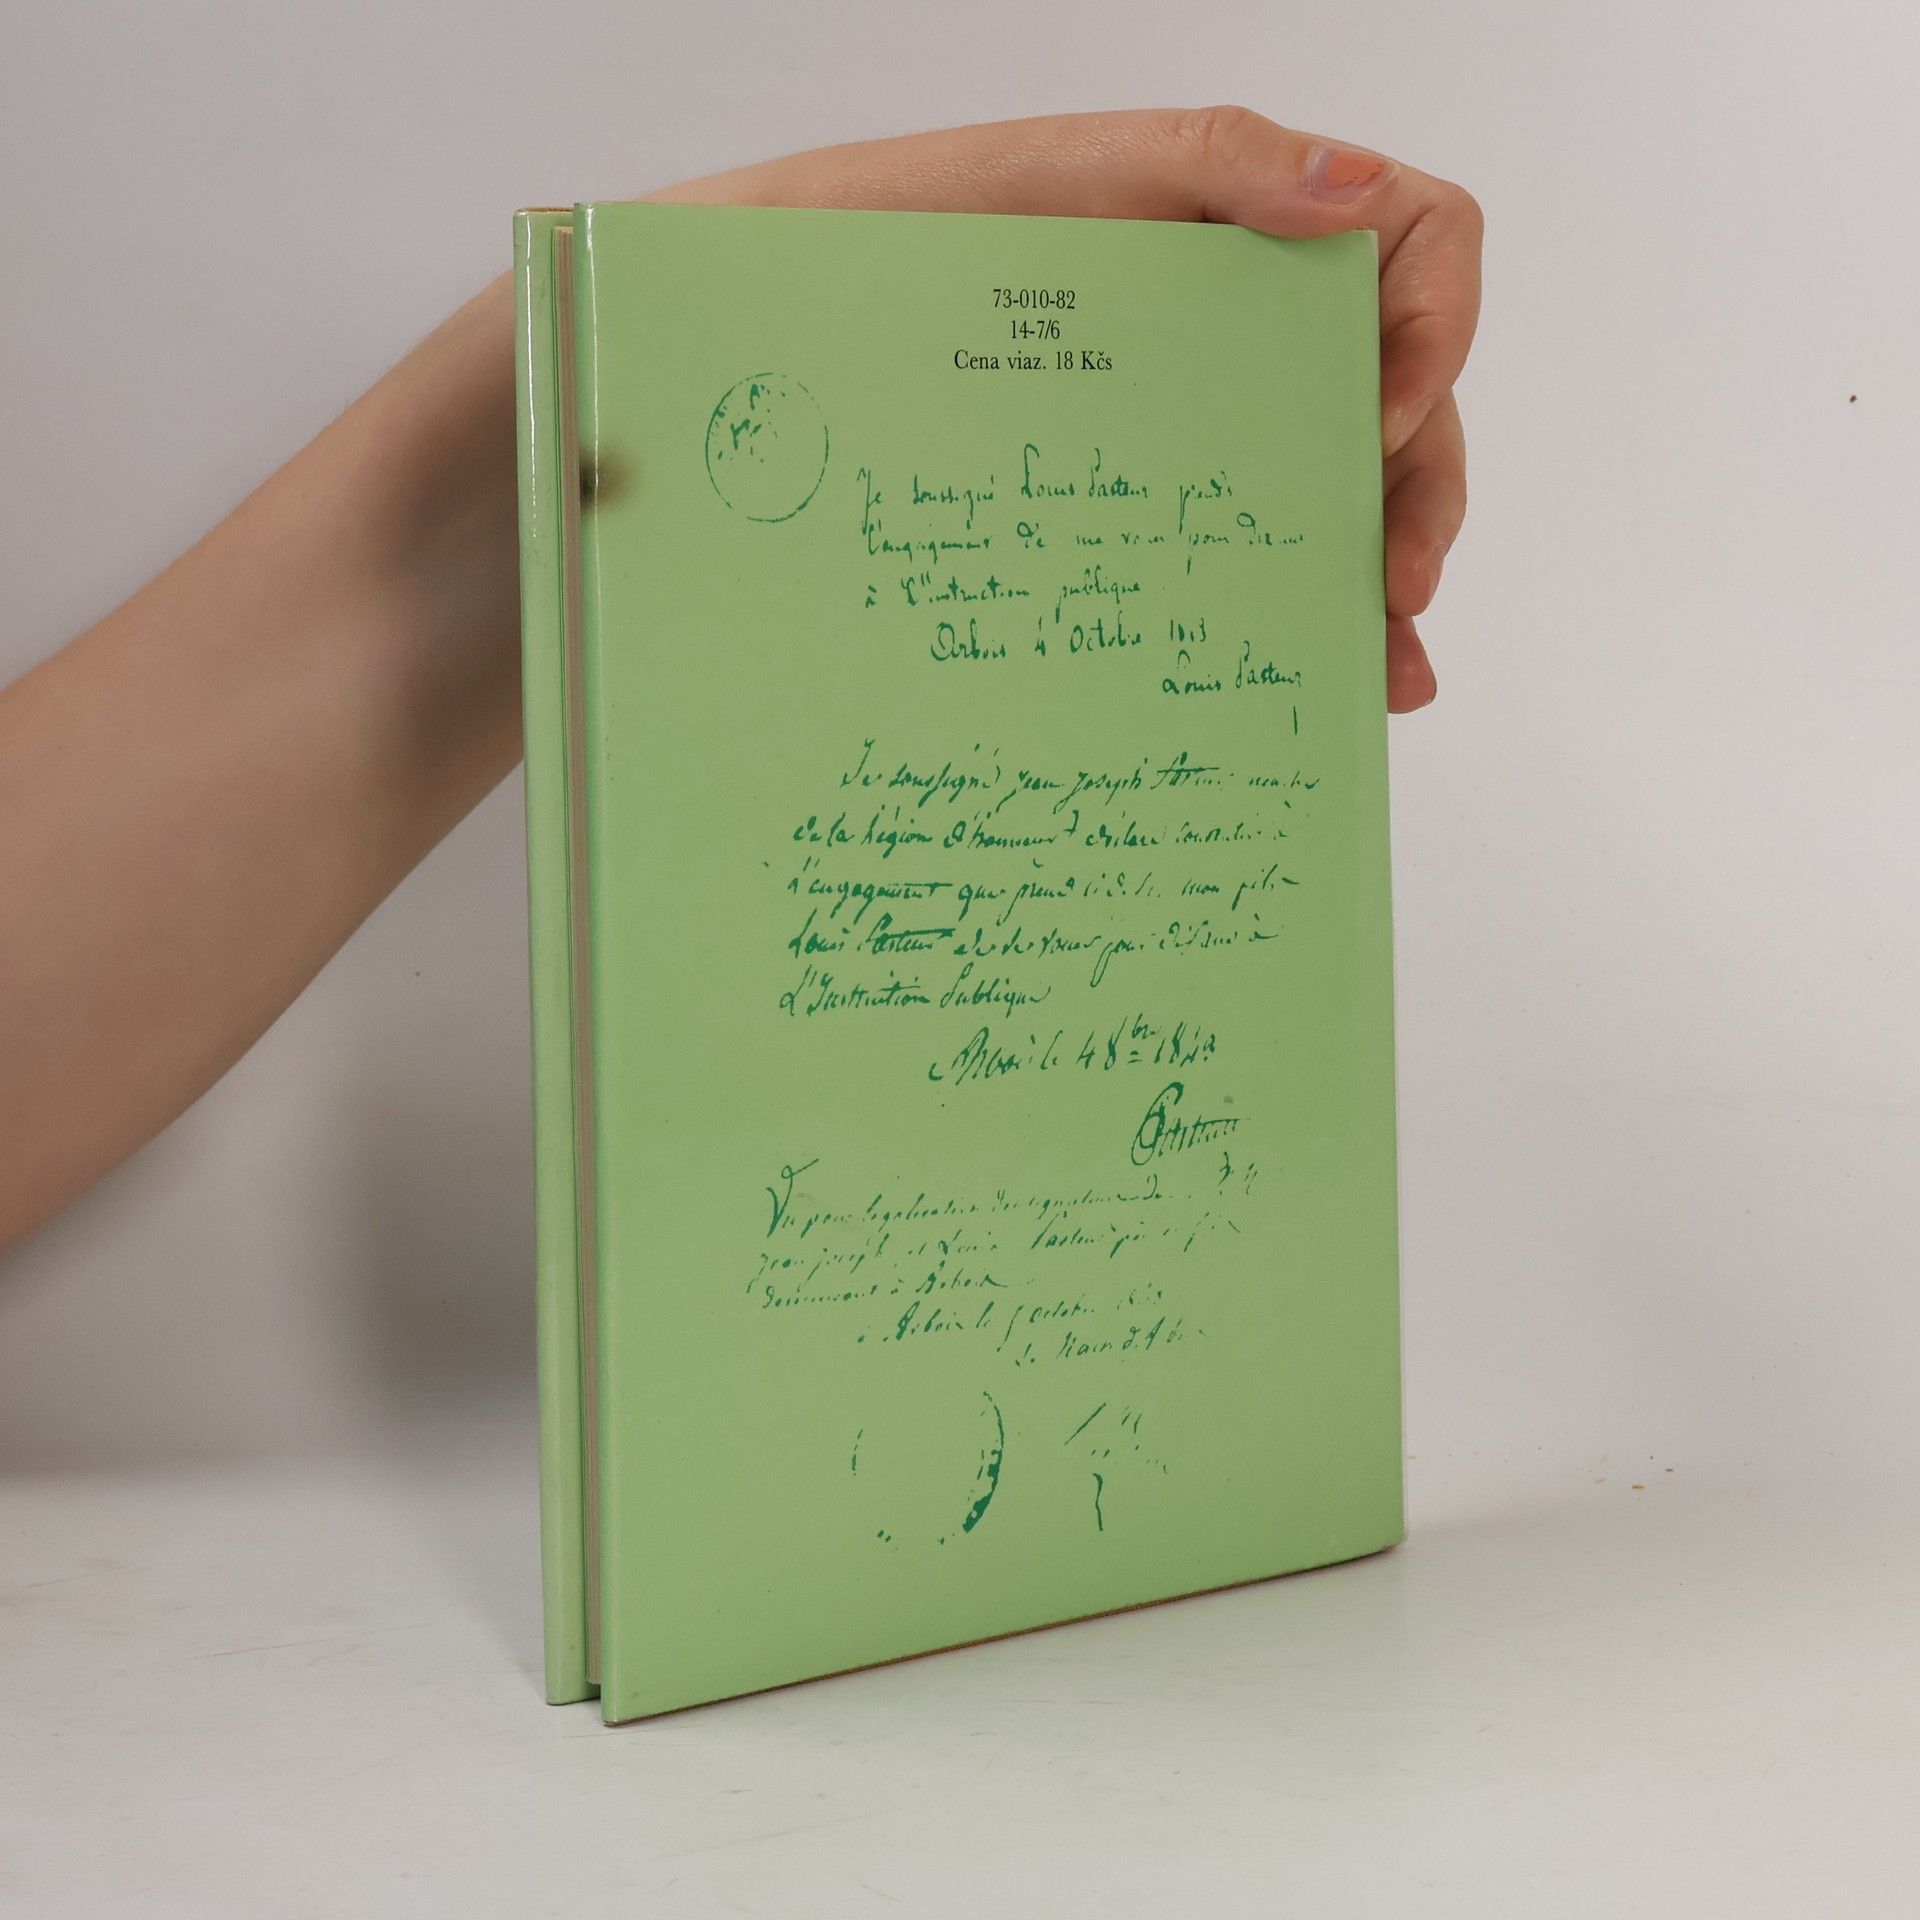 73-010-82
14-7/6
Cena viaz. 18 Kčs
Je soussigné Louis Pasteur prends
l'engagement de me vouer pour dix ans
à l'instruction publique.
Arbois 4 Octobre
Louis Pasteur
Je soussigné jean joseph Pasteur
de la légion d'honneur déclare consentir à
l'engagement que prend mon fils
Louis Pasteur de se vouer pour dix ans à
L'Instruction Publique
Arbois le 4 8bre
Pasteur
Vu pour légalisation des signatures de
jean joseph et Louis Pasteur père et fils
demeurant à Arbois
à Arbois le 5 octobre